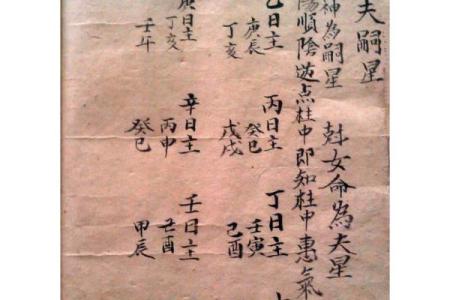 夫嗣星
神為嗣星 尅女命為夫星
陽順陰逆点柱中即知柱中惠氣
乙日主 丙日主 丁日主
庚辰 癸巳 壬寅
丁亥 戊戌 己酉
庚日主 辛日主 壬日主
丁亥 丙申 丑酉
壬午 癸巳 甲辰